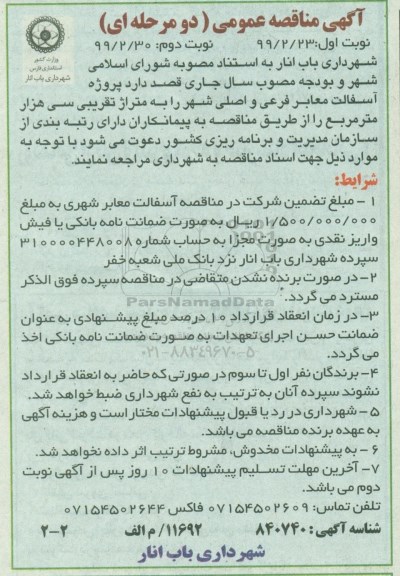 آگهی مناقصه عمومی ( دو مرحله ای)
وزارت کشور
استانداری فارس
شهرداری باب انار
نوبت اول:۹۹/۲/۲۳ نوبت دوم: ۹۹/۲/۳۰
شهرداری باب انار به استناد مصوبه شورای اسلامی
شهر و بودجه مصوب سال جاری قصد دارد پروژه
آسفالت معابر فرعی و اصلی شهر را به متراژ تقریبی سی هزار
مترمربع را از طریق مناقصه به پیمانکاران دارای رتبه بندی از
سازمان مدیریت و برنامه ریزی کشور دعوت می شود با توجه به
موارد ذیل جهت اسناد مناقصه به شهرداری مراجعه نمایند.
شرایط:
۱ – مبلغ تضمین شرکت در مناقصه آسفالت معابر شهری به مبلغ
۱/۵۰۰/۰۰۰/۰۰۰ ریال به صورت ضمانت نامه بانکی یا فیش
واریز نقدی به صورت مجزا به حساب شماره ۳۱۰۰۰۰۴۴۸۰۰۸
سپرده شهرداری باب انار نزد بانک ملی شعبه خفر
۲–در صورت برنده نشدن متقاضی در مناقصه سپرده فوق الذکر
مسترد می گردد.
ParsNamadData
۳– در زمان انعقاد قرارداد ۱۰ درصد مبلغ پیشنهادی به عنوان
ضمانت حسن اجرای تعهدات به صورت ضمانت نامه بانکی اخذ
می گردد.
۰۲۱-۸۸۳۴۹۶۷۰-۵
۴– برندگان نفر اول تا سوم در صورتی که حاضر به انعقاد قرارداد
نشوند سپرده آنان به ترتیب به نفع شهرداری ضبط خواهد شد.
۵ – شهرداری در رد یا قبول پیشنهادات مختار است و هزینه آگهی
به عهده برنده مناقصه می باشد.
۶ – به پیشنهادات مخدوش، مشروط ترتیب اثر داده نخواهد شد.
۷– آخرین مهلت تسلیم پیشنهادات ۱۰ روز پس از آگهی نوبت
دوم می باشد.
تلفن تماس: ۰۷۱۵۴۵۰۲۶۰۹ فاکس ۰۷۱۵۴۵۰۲۶۴۴
شناسه آگهی: ۸۴۰۷۴۰ ۱۱۶۹۲/ م الف ۲-۲
شهرداری باب انار